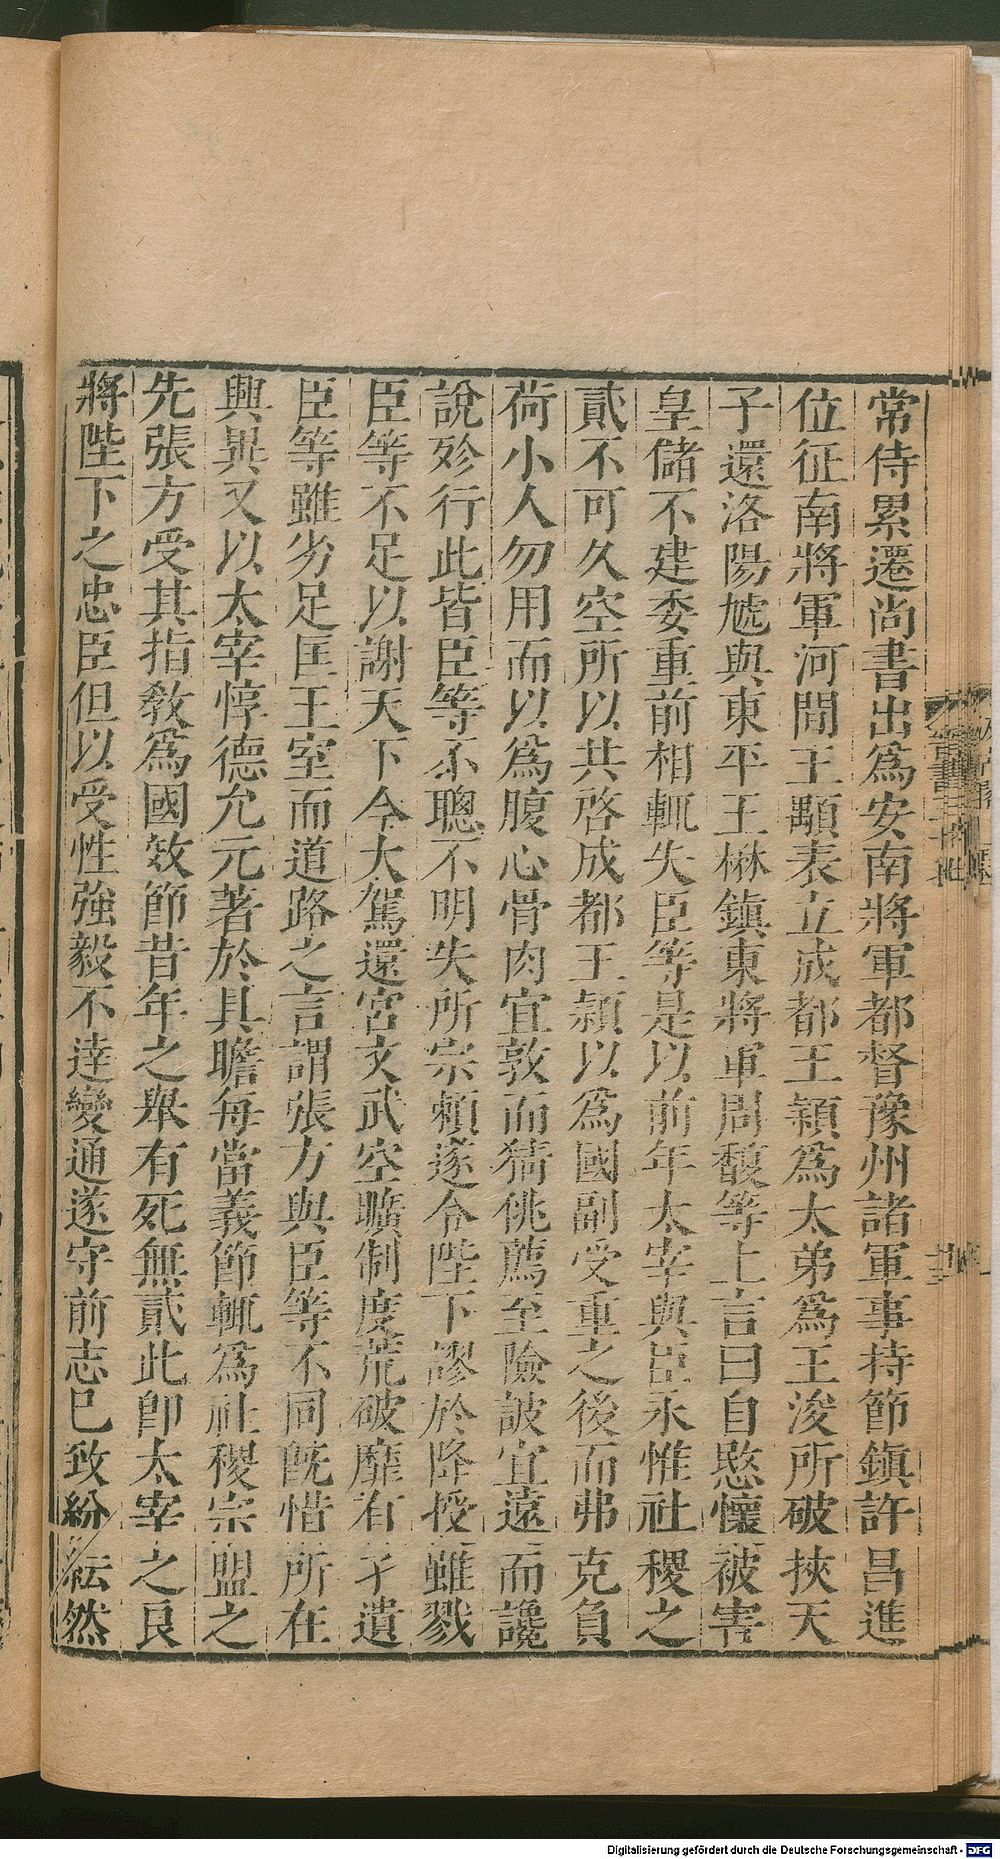 常侍累遷尚書出爲安南將軍都督豫州諸軍事持節鎮許昌進
位征南將軍河間王顒表立成都王穎爲太弟爲王浚所破挾天
子還洛陽虓與東平王楙鎮東將軍周馥等上言曰自愍懷被害
皇儲不建委重前相輒失臣等是以前年太宰與臣永惟社稷之
貳不可久空所以共啓成都王穎以爲國副受重之後而弗克負
荷小人勿用而以爲腹心骨肉宜敦而猜佻薦至險詖宜遠而讒
說殄行此皆臣等不聰不明失所宗賴遂令陛下謬於降授雖戮
臣等不足以謝天下今大駕還宮文武空曠制度荒破靡有孑遺
臣等雖劣足匡王室而道路之言謂張方與臣等不同既惜所在
興異又以太宰惇德允元著於具瞻每當義節輒爲社稷宗盟之
先張方受其指敎爲國效節昔年之舉有死無貳此卽太宰之良
將陛下之忠臣但以受性強毅不達變通遂守前志已致紛紜然
Digitalisierung gefördert durch die Deutsche Forschungsgemeinschaft - DFG